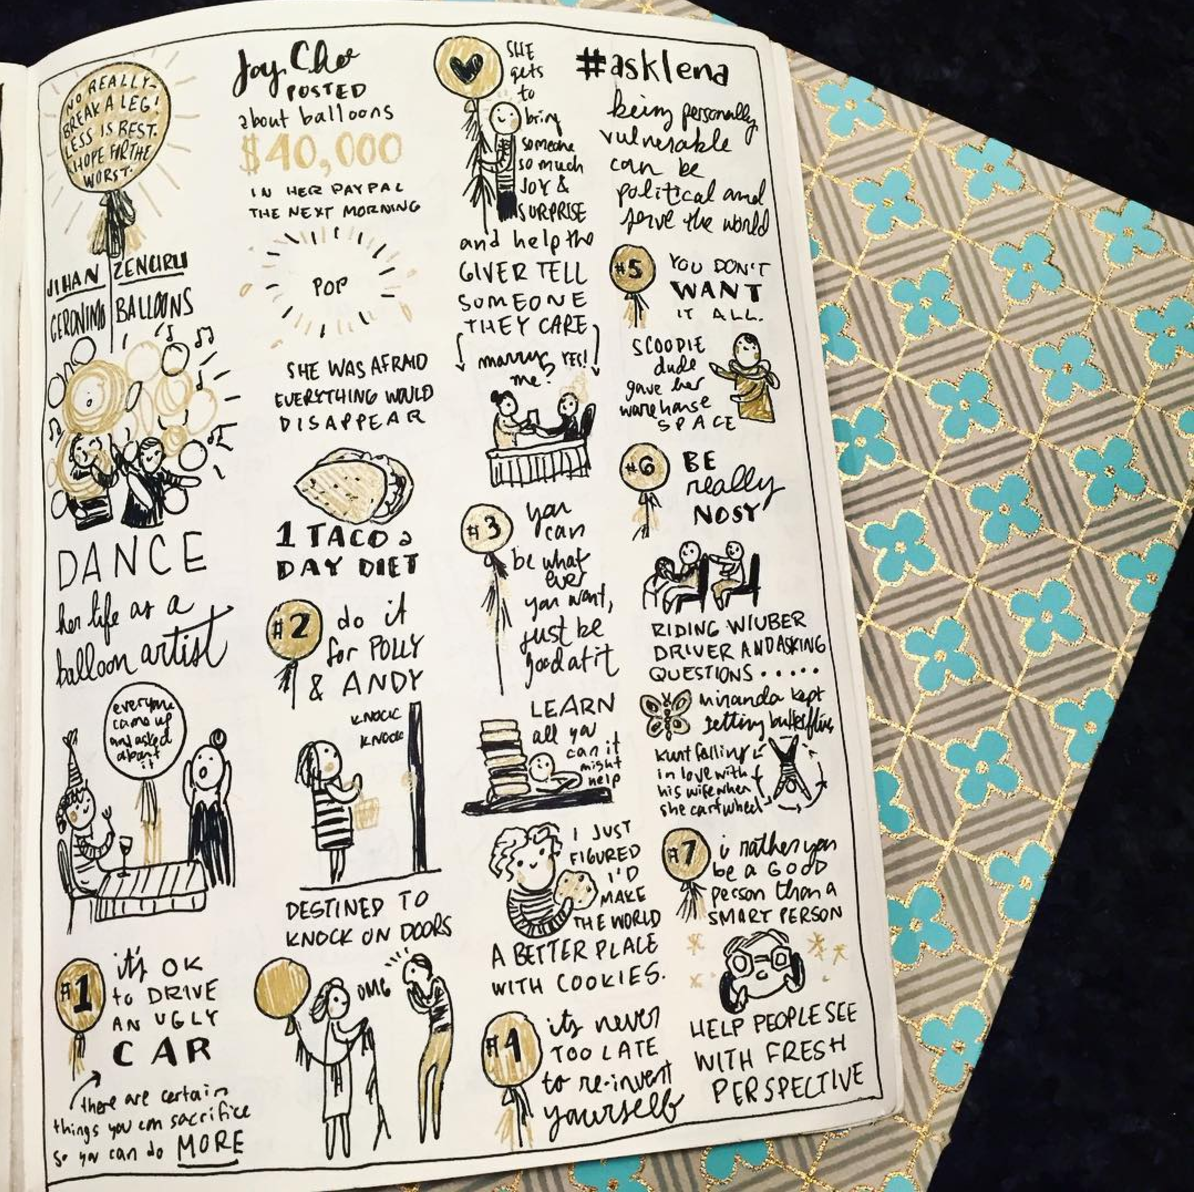 NO REALLY-
BREAK A LEG!
LESS IS BEST.
HOPE FOR THE
WORST.
JIHAN ZENCIRLI
GERONIMO BALLOONS
DANCE
her life as a
balloon artist
everyone
came up
and asked
about
it
#1
it's OK
to DRIVE
AN UGLY
CAR
there are certain
things you can sacrifice
so you can do MORE
Joy Cho
POSTED
about balloons
$40,000
IN HER PAYPAL
THE NEXT MORNING
POP
SHE WAS AFRAID
EVERYTHING WOULD
DISAPPEAR
1 TACO a
DAY DIET
#2
do it
for POLLY
& ANDY
KNOCK
KNOCK
DESTINED TO
KNOCK ON DOORS
OMG
SHE
gets
to
bring
someone
so much
JOY &
SURPRISE
and help the
GIVER TELL
SOMEONE
THEY CARE
marry
me?
YES!
#3
you
can
be what
ever
you want,
just be
good at it
LEARN
all you
can it
might
help
I JUST
FIGURED
I'D
MAKE
THE WORLD
A BETTER PLACE
WITH COOKIES.
#4
it's never
TOO LATE
to re-invent
yourself
#asklena
being personally
vulnerable
can be
political and
serve the world
#5
YOU DON'T
WANT
IT ALL.
SCOOPIE
dude
gave her
warehouse
SPACE
#6
BE
really
NOSY
RIDING W/UBER
DRIVER AND ASKING
QUESTIONS.....
miranda kept
getting butterflies
Kurt falling
in love with
his wife when
she cartwheel
#7
i rather you
be a GOOD
person than a
SMART PERSON
HELP PEOPLE SEE
WITH FRESH
PERSPECTIVE